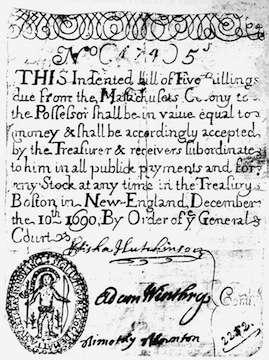 No (4740) 5s
THIS Indented Bill of Five Shillings
due from the Massachusets Colony to
the Possessor shall be in value equal to
money & shall be accordingly accepted
by the Treasurer & receivers subordinate
to him in all publick payments and for
any Stock at any time in the Treasury
Boston in New-England, December
the 10th 1690, By Order of ye General
Court
Elisha Hutchinson
Adam Winthrop
Timothy Thornton
Comtee
2252